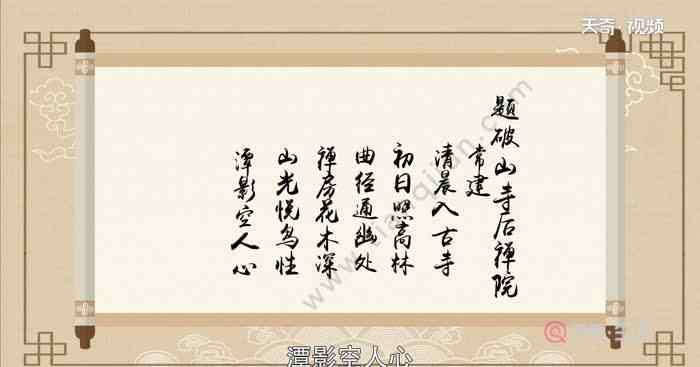 天奇·视频
题破山寺后禅院
常建
清晨入古寺
初日照高林
曲径通幽处
禅房花木深
山光悦鸟性
潭影空人心
潭影空人心